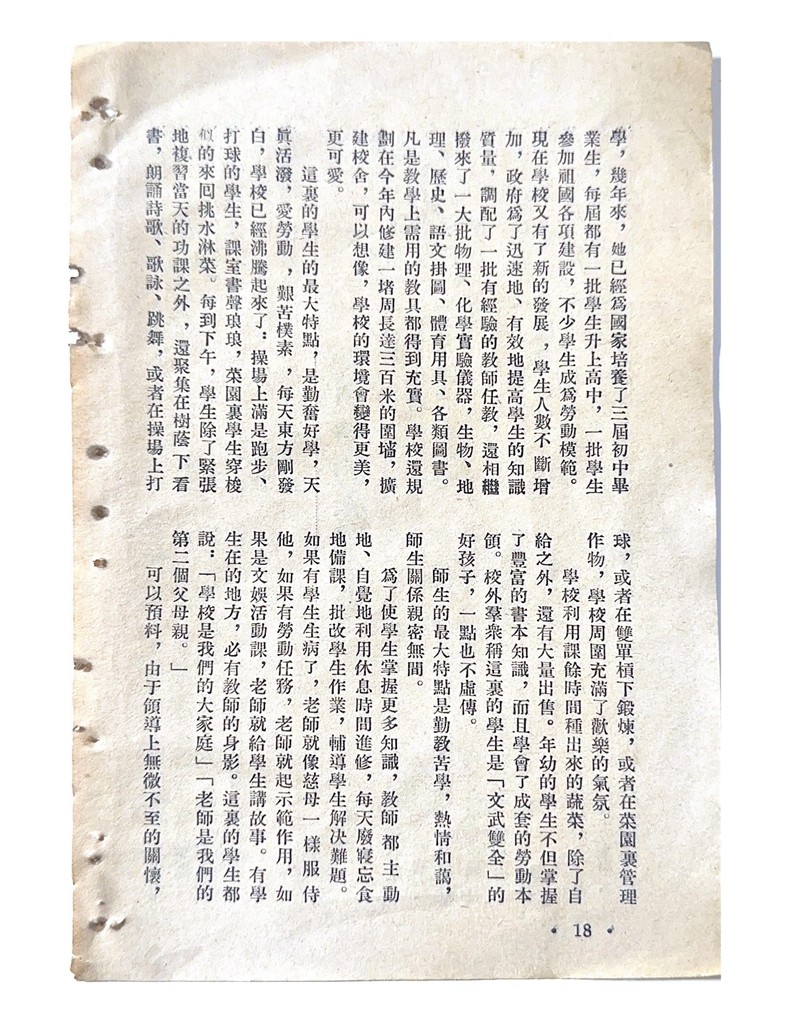 學，幾年來，她已經爲國家培養了三屆初中畢
業生，每屆都有一批學生升上高中，一批學生
參加祖國各項建設，不少學生成爲勞動模範。
現在學校又有了新的發展，學生人數不斷增
加，政府爲了迅速地、有效地提高學生的知識
質量，調配了一批有經驗的教師任教，還相繼
撥來了一大批物理、化學實驗儀器，生物、地
理、歷史、語文掛圖、體育用具、各類圖書。
凡是教學上需用的教具都得到充實。學校還規
劃在今年內修建一堵周長達三百米的圍墻，擴
建校舍，可以想像，學校的環境會變得更美，
更可愛。
這裏的學生的最大特點，是勤奮好學，天
眞活潑，愛勞動，艱苦樸素，每天東方剛發
白，學校已經沸騰起來了：操場上滿是跑步、
打球的學生，課室書聲琅琅，菜園裏學生穿梭
似的來回挑水淋菜。每到下午，學生除了緊張
地複習當天的功課之外，還聚集在樹蔭下看
書，朗誦詩歌、歌詠、跳舞，或者在操場上打
球，或者在雙單槓下鍛煉，或者在菜園裏管理
作物，學校周圍充滿了歡樂的氣氛。
學校利用課餘時間種出來的蔬菜，除了自
給之外，還有大量出售。年幼的學生不但掌握
了豐富的書本知識，而且學會了成套的勞動本
領。校外羣衆稱這裏的學生是「文武雙全」的
好孩子，一點也不虛傳。
師生的最大特點是勤敎苦學，熱情和藹，
師生關係親密無間。
爲了使學生掌握更多知識，教師都主動
地、自覺地利用休息時間進修，每天廢寢忘食
地備課，批改學生作業，輔導學生解決難題。
如果有學生生病了，老師就像慈母一樣服侍
他，如果有勞動任務，老師就起示範作用，如
果是文娛活動課，老師就給學生講故事。有學
生在的地方，必有教師的身影。這裏的學生都
說：「學校是我們的大家庭」「老師是我們的
第二個父母親。」
可以預料，由于領導上無微不至的關懷，
• 18 •